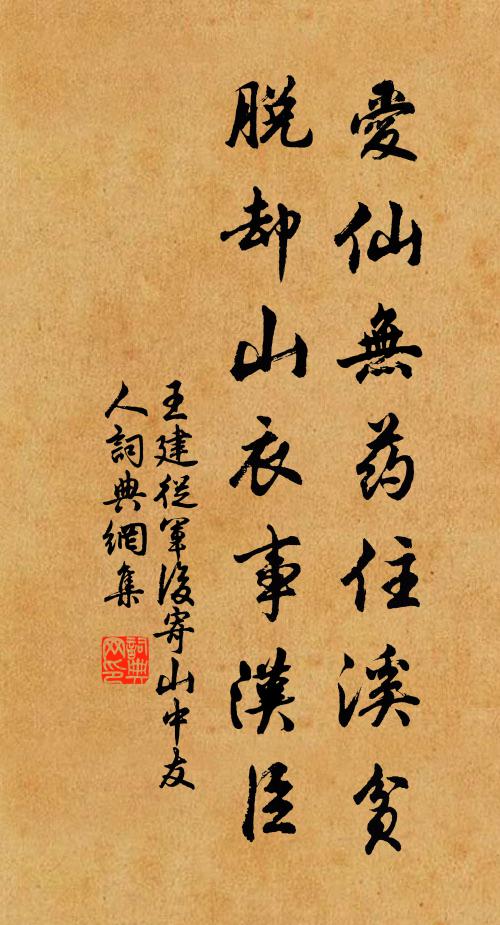 愛仙無药住溪貧
脱却山衣事漢臣
王建從軍後寄山中友
人詞典網集
詞典網印